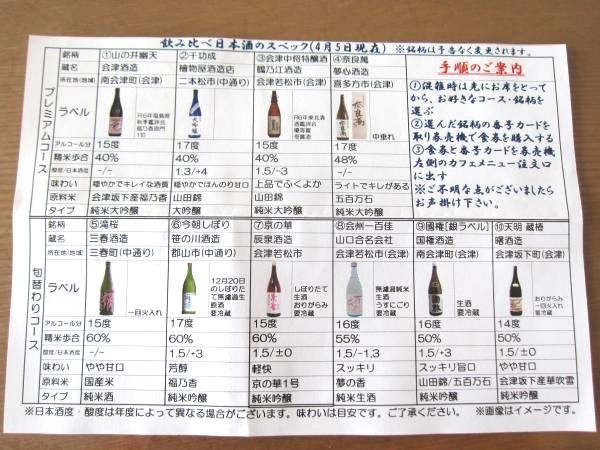 飲み比べ日本酒のスペック(4月5日現在) ※銘柄は予告なく変更されます。
プレミアムコース
銘柄 ①山の井幽天 ②千功成 ③会津中将特醸酒 ④奈良萬
蔵名 会津酒造 檜物屋酒造店 鶴乃江酒造 夢心酒造
所在地(地域) 南会津町(会津) 二本松市(中通り) 会津若松市(会津) 喜多方市(会津)
ラベル R6年福島県秋季鑑評会福乃香部門1位 R6年東北清酒鑑評会優等賞受賞酒 中垂れ
アルコール分 15度 17度 15度 17度
精米歩合 40% 40% 40% 48%
酸度/日本酒度 -/- 1.3/+4 1.5/-3 -/-
味わい 穏やかでキレイな酒質 穏やかでほんのり甘口 上品でふくよか ライトでキレがある
原料米 会津坂下産福乃香 山田錦 山田錦 五百万石
タイプ 純米大吟醸 大吟醸 純米大吟醸 純米大吟醸
手順のご案内
①混雑時は先にお席をとってから、お好きなコース・銘柄を選ぶ
②選んだ銘柄の番子カードを取り券売機で食券を購入する
③食券と番子カードを券売機左側のカフェメニュー注文口に出す
※ご不明な点がございましたらお声掛け下さい。
旬替わりコース
銘柄 ⑤滝桜 ⑥今朝しぼり ⑦京の華 ⑧会州一百佳 ⑨國権[銀ラベル] ⑩天明 蔵椿
蔵名 三春酒造 笹の川酒造 辰泉酒造 山口合名会社 国権酒造 曙酒造
所在地(地域) 三春町(中通り) 郡山市(中通り) 会津若松市 会津若松市(会津) 南会津町(会津) 会津坂下町(会津)
ラベル 一回火入れ 12月20日のしぼりたて無濾過生原酒要冷蔵 しぼりたて生酒おりがらみ要冷蔵 無濾過純米生酒うすにごり要冷蔵 生酒要冷蔵 おりがらみ一回火入れ要冷蔵
アルコール分 15度 17度 15度 16度 16度 14度
精米歩合 60% 60% 60% 55% 50% 50%
酸度/日本酒度 -/- 1.5/+3 1.5/±0 1.5/-1.3 1.5/+3 1.5/±0
味わい やや甘口 芳醇 軽快 スッキリ スッキリ旨口 やや甘口
原料米 国産米 福乃香 京の華1号 夢の香 山田錦/五百万石 会津坂下産華吹雪
タイプ 純米酒 純米吟醸 純米吟醸 純米生酒 純米吟醸 純米吟醸
※日本酒度・酸度は年度によって異なる場合がございます。味わいは目安です。ご了承ください。 ※画像はイメージです。